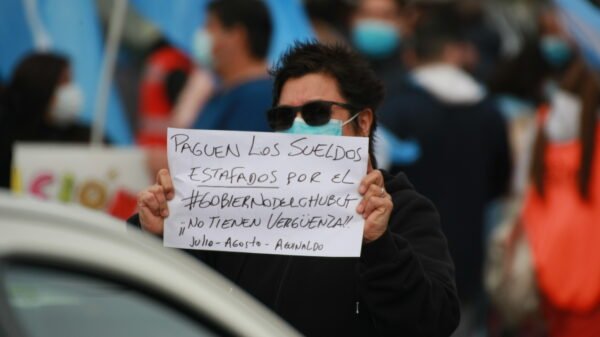 PAGUEN LOS SUELDOS
ESTAFADOS POR EL
#GOBIERNODELCHUBUT
¡¡NO TIENEN VERGÜENZA!!
JULIO - AGOSTO - AGUINALDO